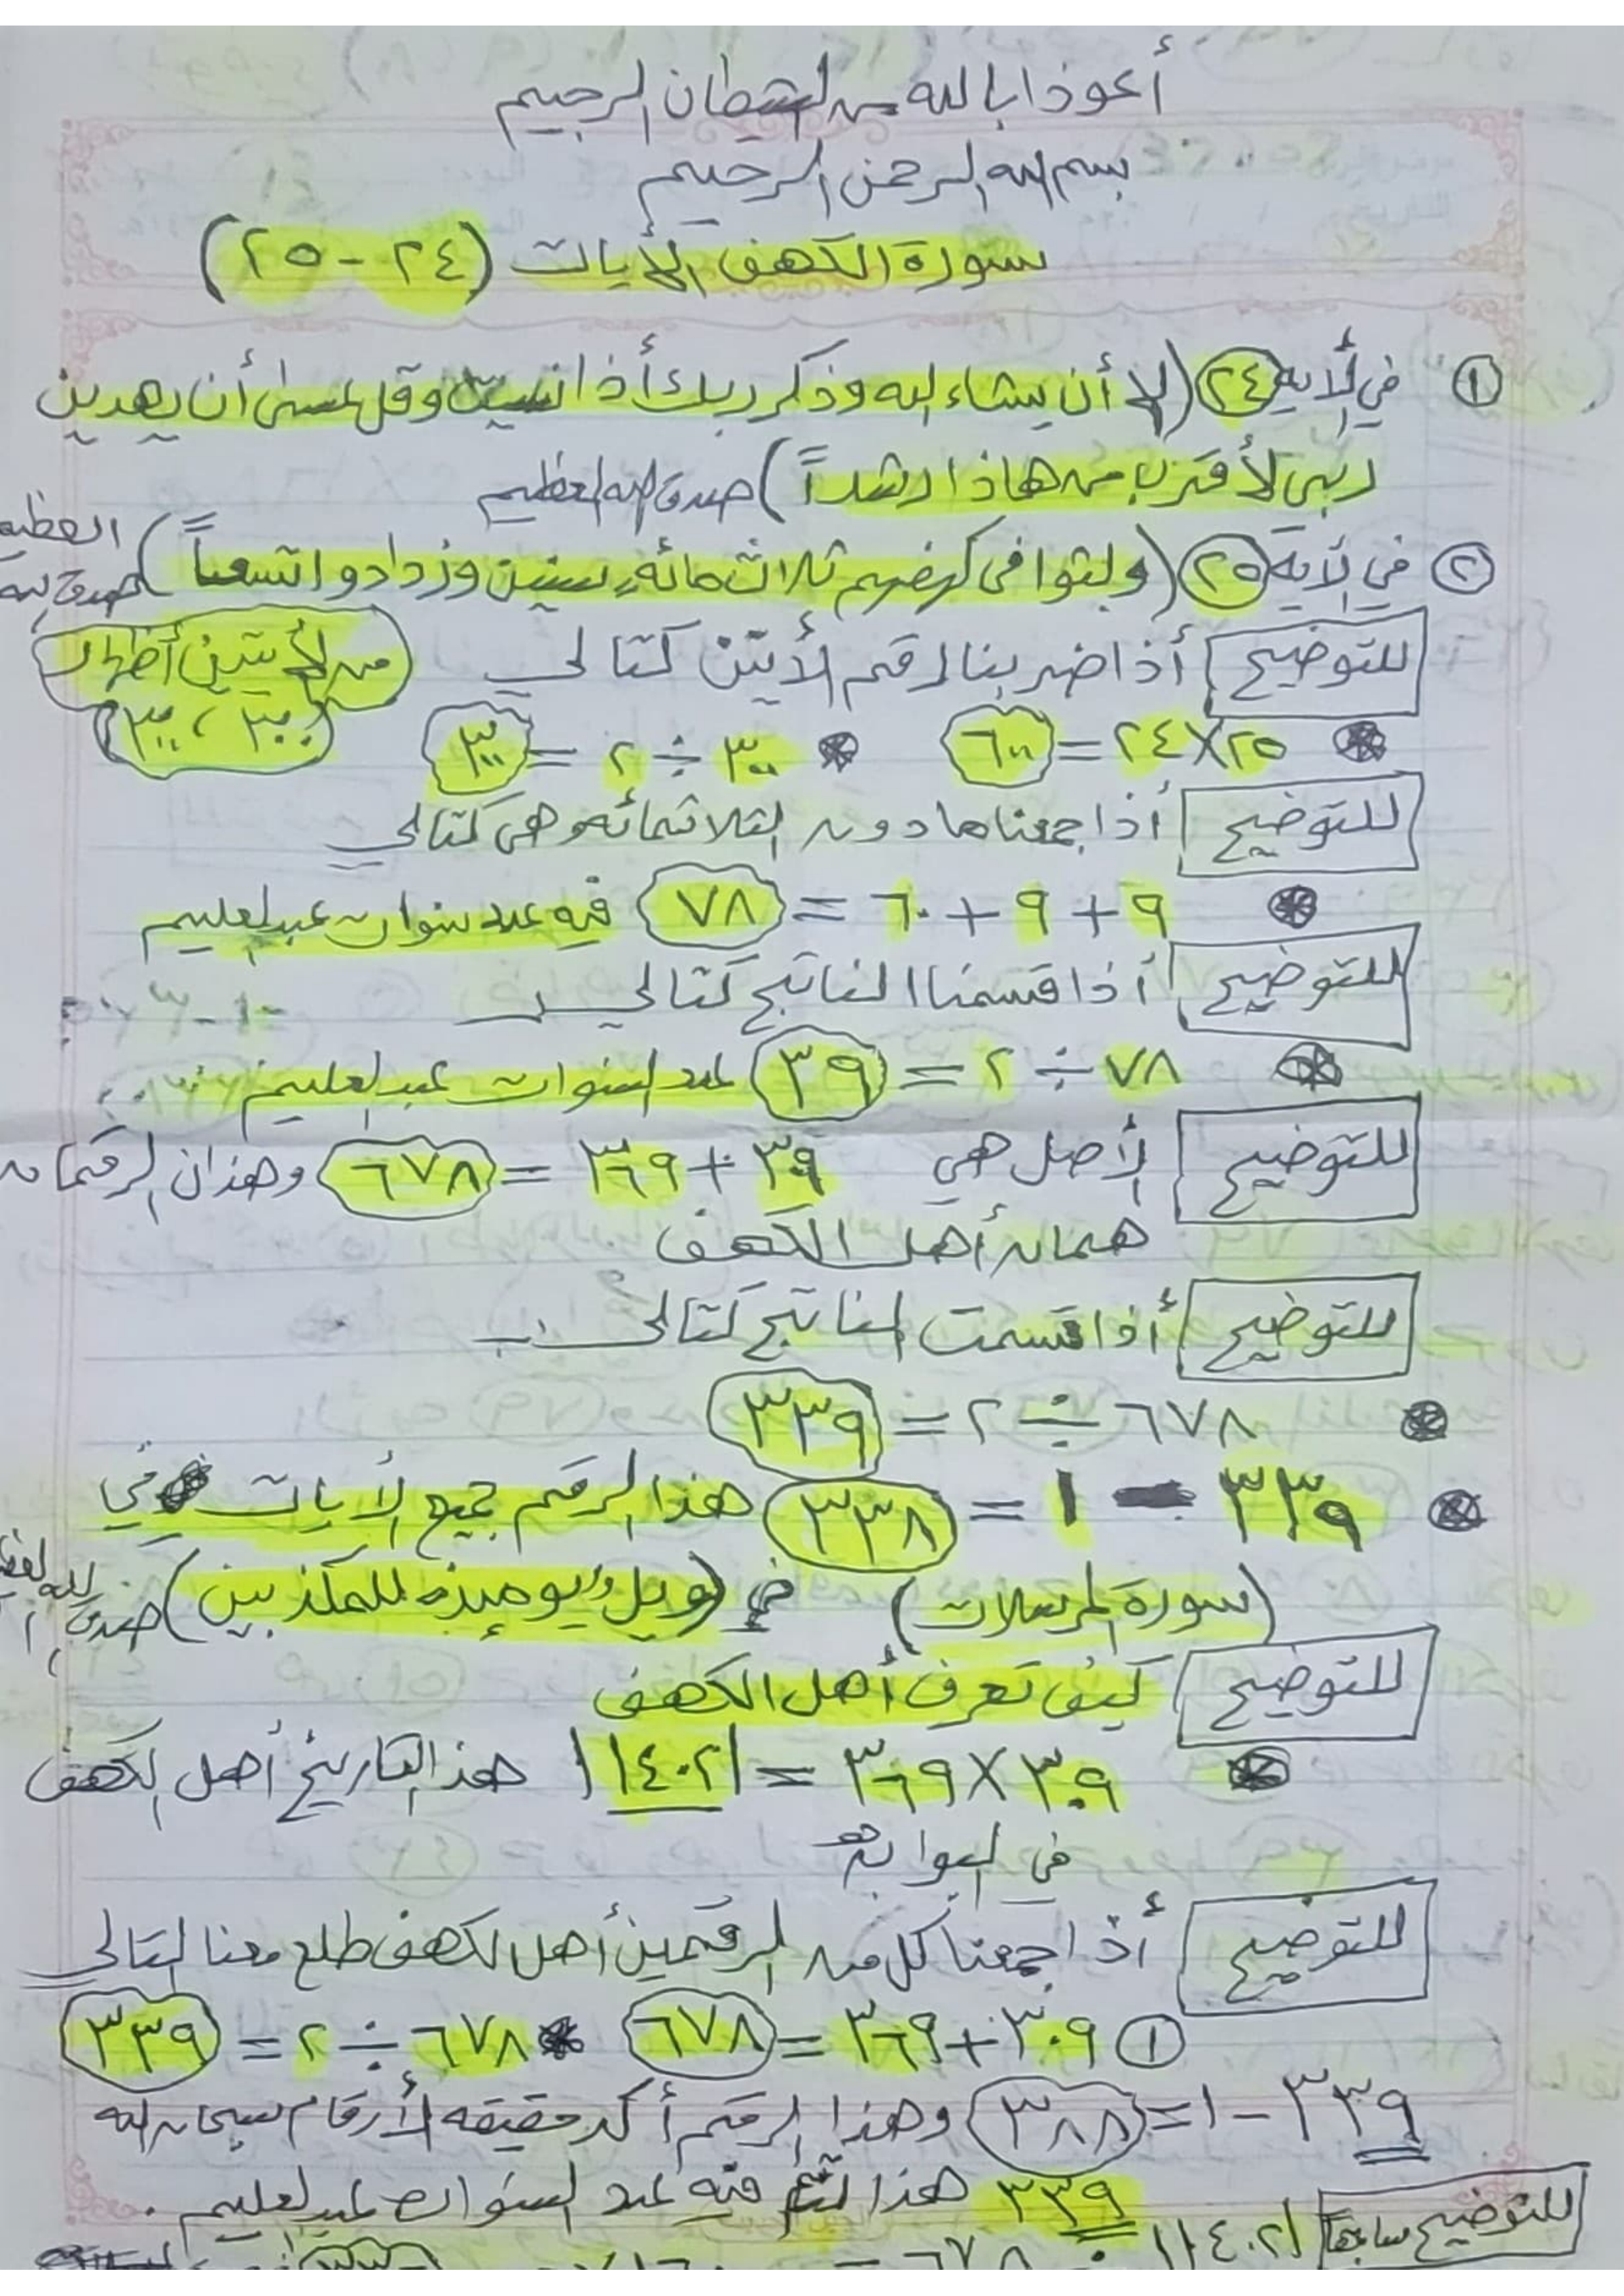 أعوذ بالله من الشيطان الرجيم
بسم الله الرحمن الرحيم
سورة الكهف الأيات (٢٤ - ٢٥)
① في لأية ٢٤ (إلا أن يشاء الله وذكر ربك أذا نسيت وقل عسى أن يهدين
ربي لأقترب من هاذا رشداً) صدق الله العظيم
② في لأية ٢٥ (ولبثوا في كهفهم ثلاث مائه سنين وزدادوا تسعاً) صدق الله العظيم
للتوضيح أذا ضربنا رقم الأيتين كتالي
من الأيتين أظهار (٣٠٠ ، ٣٠٠)
٢٥ × ٢٤ = ٦٠٠ * ٣٠٠ ÷ ٢ = ٣٠٠
للتوضيح أذا جمعناها دون الثلاثمائه وهي كتالي
٩ + ٩ + ٦٠ = ٧٨ فيه عدد سنوات عبدالعليم
للتوضيح أذا قسمنا الناتج كتالي
٧٨ ÷ ٢ = ٣٩ عدد السنوات عبدالعليم
للتوضيح لأصل هي ٣٠٩ + ٣٦٩ = ٦٧٨ وهذان الرقمان
همان أهل الكهف
للتوضيح أذا قسمت الناتج كتالي
٦٧٨ ÷ ٢ = ٣٣٩
٣٣٩ - ١ = ٣٣٨ هذا الرقم جميع لأيات في
(سورة المرسلات) في (ويل يوميذه للمكذبين) صدق الله العظيم
للتوضيح كيف تعرف أهل الكهف
٣٠٩ × ٣٦٩ = ١١٤٠٢١ هذا التاريخ أهل الكهف
في البوابه
للتوضيح أذا جمعنا كل من الرقمين أهل الكهف طلع معنا التالي
① ٣٠٩ + ٣٦٩ = ٦٧٨ * ٦٧٨ ÷ ٢ = ٣٣٩
٣٣٩ - ١ = ٣٨٨ وهذا الرقم أكد حقيقه لأرقام سبحان الله
٣٣٩ هذا فيه عدد السنوات عبدالعليم .
للتوضيح سابقاً ١١٤٠٢١ ÷ ٦٧٨ =